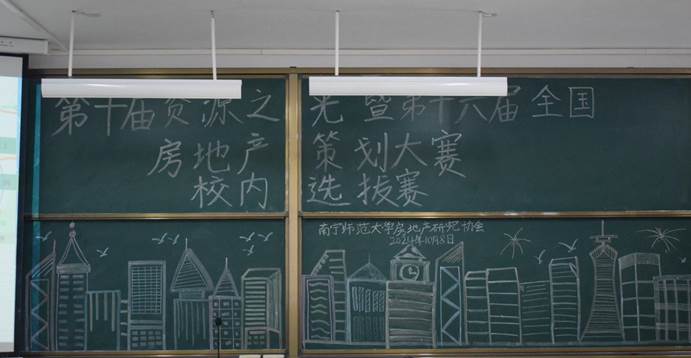 第十届资源之光暨第十六届全国
房地产策划大赛
校内选拔赛
南宁师范大学房地产研究协会
2024年10月8日